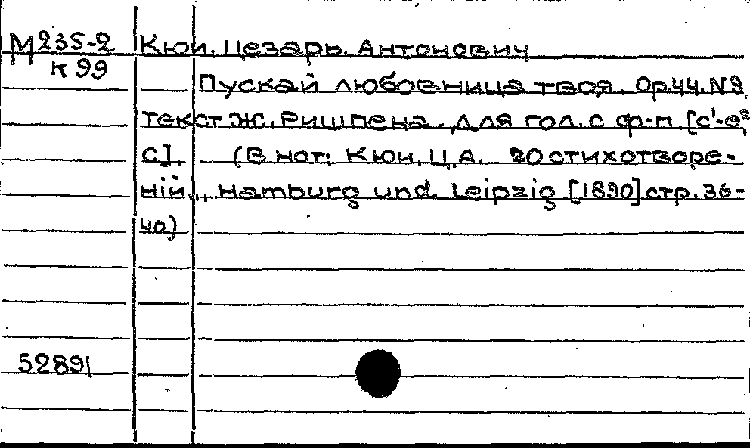 М 235-2 Кюи, Цезарь Антонович
К 99
Пускай любовница твоя. Op.44. N9
Текст Ж. Ришпена. Для гол. с ф-п. [c¹-
C]. (В нот: Кюи, Ц.А. 20 стихотворе-
ній., Hamburg und Leipzig [1890] стр. 36-
40)
52891